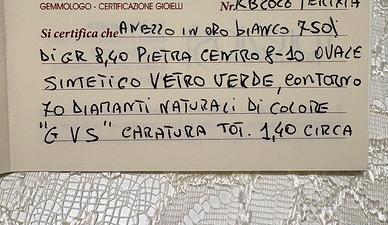 GEMMOLOGO - CERTIFICAZIONE GIOIELLI Nr.
Si certifica che ANELLO IN ORO BIANCO 750i
DI GR 8,40 PIETRA CENTRO 8-10 OVALE
SINTETICO VETRO VERDE, CONTORNO
70 DIAMANTI NATURALI DI COLORE
"G VS" CARATURA TOT. 1,40 CIRCA